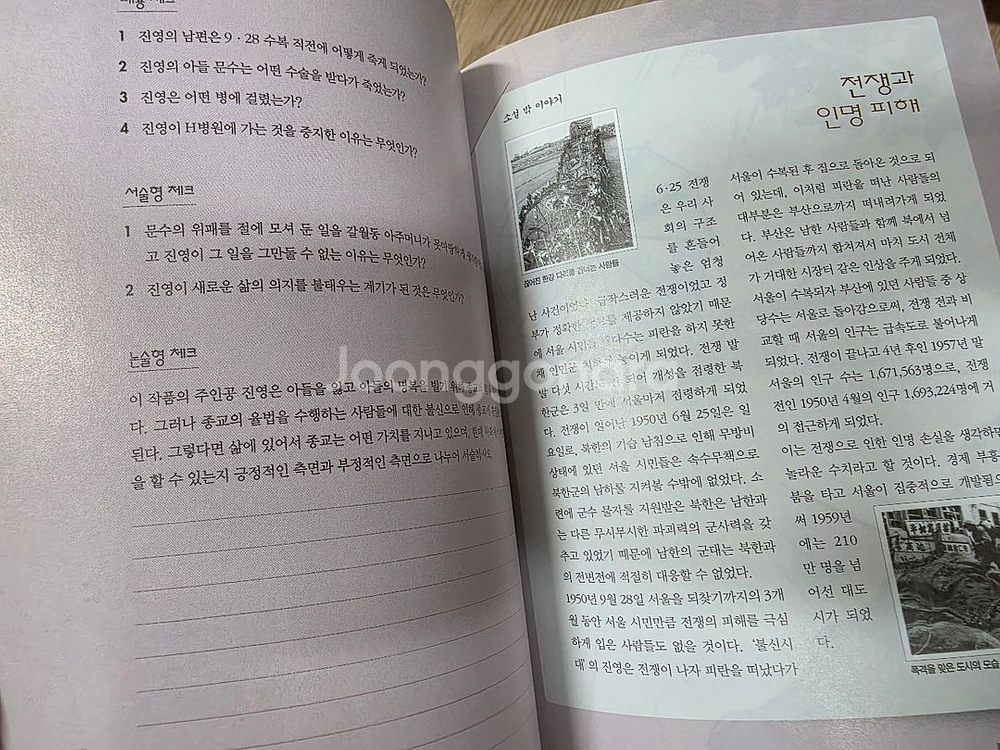 내용 체크
1 진영의 남편은 9·28 수복 직전에 어떻게 죽게 되었는가?
2 진영의 아들 문수는 어떤 수술을 받다가 죽었는가?
3 진영은 어떤 병에 걸렸는가?
4 진영이 H병원에 가는 것을 중지한 이유는 무엇인가?
서술형 체크
1 문수의 위패를 절에 모셔 둔 일을 갈월동 아주머니가 못마땅하게
고 진영이 그 일을 그만둘 수 없는 이유는 무엇인가?
2 진영이 새로운 삶의 의지를 불태우는 계기가 된 것은 무엇인가?
논술형 체크
이 작품의 주인공 진영은 아들을 잃고 아들의 명복을 빌기 위해
다. 그러나 종교의 율법을 수행하는 사람들에 대한 불신으로 인해 종교에
된다. 그렇다면 삶에 있어서 종교는 어떤 가치를 지니고 있으며,
을 할 수 있는지 긍정적인 측면과 부정적인 측면으로 나누어 서술하시오.
소설 밖 이야기
전쟁과
인명 피해
끊어진 한강 다리를 건너는 사람들
6·25 전쟁
은 우리 사
회의 구조
를 흔들어
놓은 엄청
난 사건이었다. 갑작스러운 전쟁이었고 정
부가 정확한 정보를 제공하지 않았기 때문
에 서울 시민들 대다수는 피란을 하지 못한
채 인민군 치하에 놓이게 되었다. 전쟁 발
발 다섯 시간 만에 개성을 점령한 북
한군은 3일 만에 서울마저 점령하게 되었
다. 전쟁이 일어난 1950년 6월 25일은 일
요일로, 북한의 기습 남침으로 인해 무방비
상태에 있던 서울 시민들은 속수무책으로
북한군의 남하를 지켜볼 수밖에 없었다. 소
련에 군수 물자를 지원받은 북한은 남한과
는 다른 무시무시한 파괴력의 군사력을 갖
추고 있었기 때문에 남한의 군대는 북한과
의 전면전에 적절히 대응할 수 없었다.
1950년 9월 28일 서울을 되찾기까지의 3개
월 동안 서울 시민만큼 전쟁의 피해를 극심
하게 입은 사람들도 없을 것이다. '불신시
대'의 진영은 전쟁이 나자 피란을 떠났다가
서울이 수복된 후 집으로 돌아온 것으로 되
어 있는데, 이처럼 피란을 떠난 사람들의
대부분은 부산으로까지 떠내려가게 되었
다. 부산은 남한 사람들과 함께 북에서 넘
어온 사람들까지 합쳐져서 마치 도시 전체
가 거대한 시장터 같은 인상을 주게 되었다.
서울이 수복되자 부산에 있던 사람들 중 상
당수는 서울로 돌아감으로써, 전쟁 전과 비
교할 때 서울의 인구는 급속도로 불어나게
되었다. 전쟁이 끝나고 4년 후인 1957년 말
서울의 인구 수는 1,671,563명으로, 전쟁
전인 1950년 4월의 인구 1,693,224명에 거
의 접근하게 되었다.
이는 전쟁으로 인한 인명 손실을 생각하면
놀라운 수치라고 할 것이다. 경제 부흥
붐을 타고 서울이 집중적으로 개발됨으
써 1959년
에는 210
만 명을 넘
어선 대도
시가 되었
다.
폭격을 맞은 도시의 모습
Joonggonara